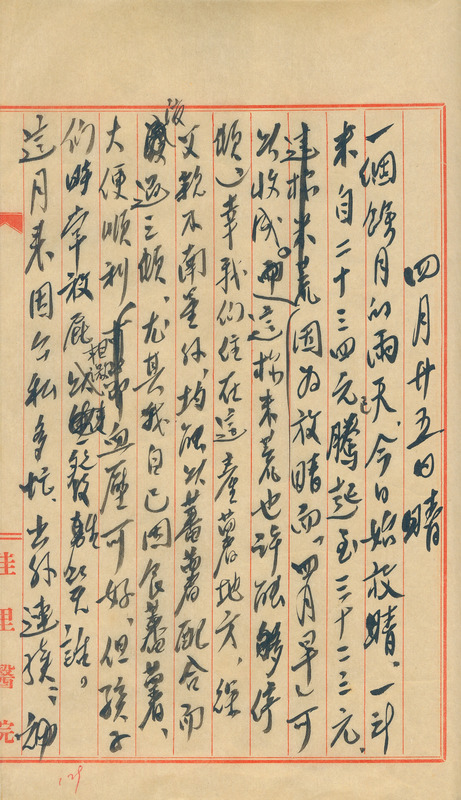 四月廿五日 晴
一個餘月的雨天、今日始放晴、一斗
米自二十三四元騰起至三十二三元、
這樣米荒(因為放晴而「四月早」可
以收成。這樣米荒也許能夠停
頓)幸我們住在這產薯地方,除
父親不南金外、均能以蕃薯配合而
渡過三頓、尤其我自己因食蕃薯、
大便順利、血壓可好、但孩子
們時常放屁發難笑話。
這月來因公私多忙、出外連接、初
佳里醫院
129